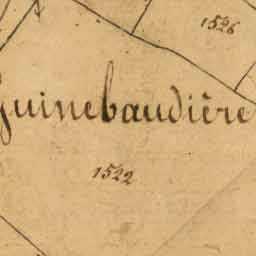 1526
Guinebaudière
1522